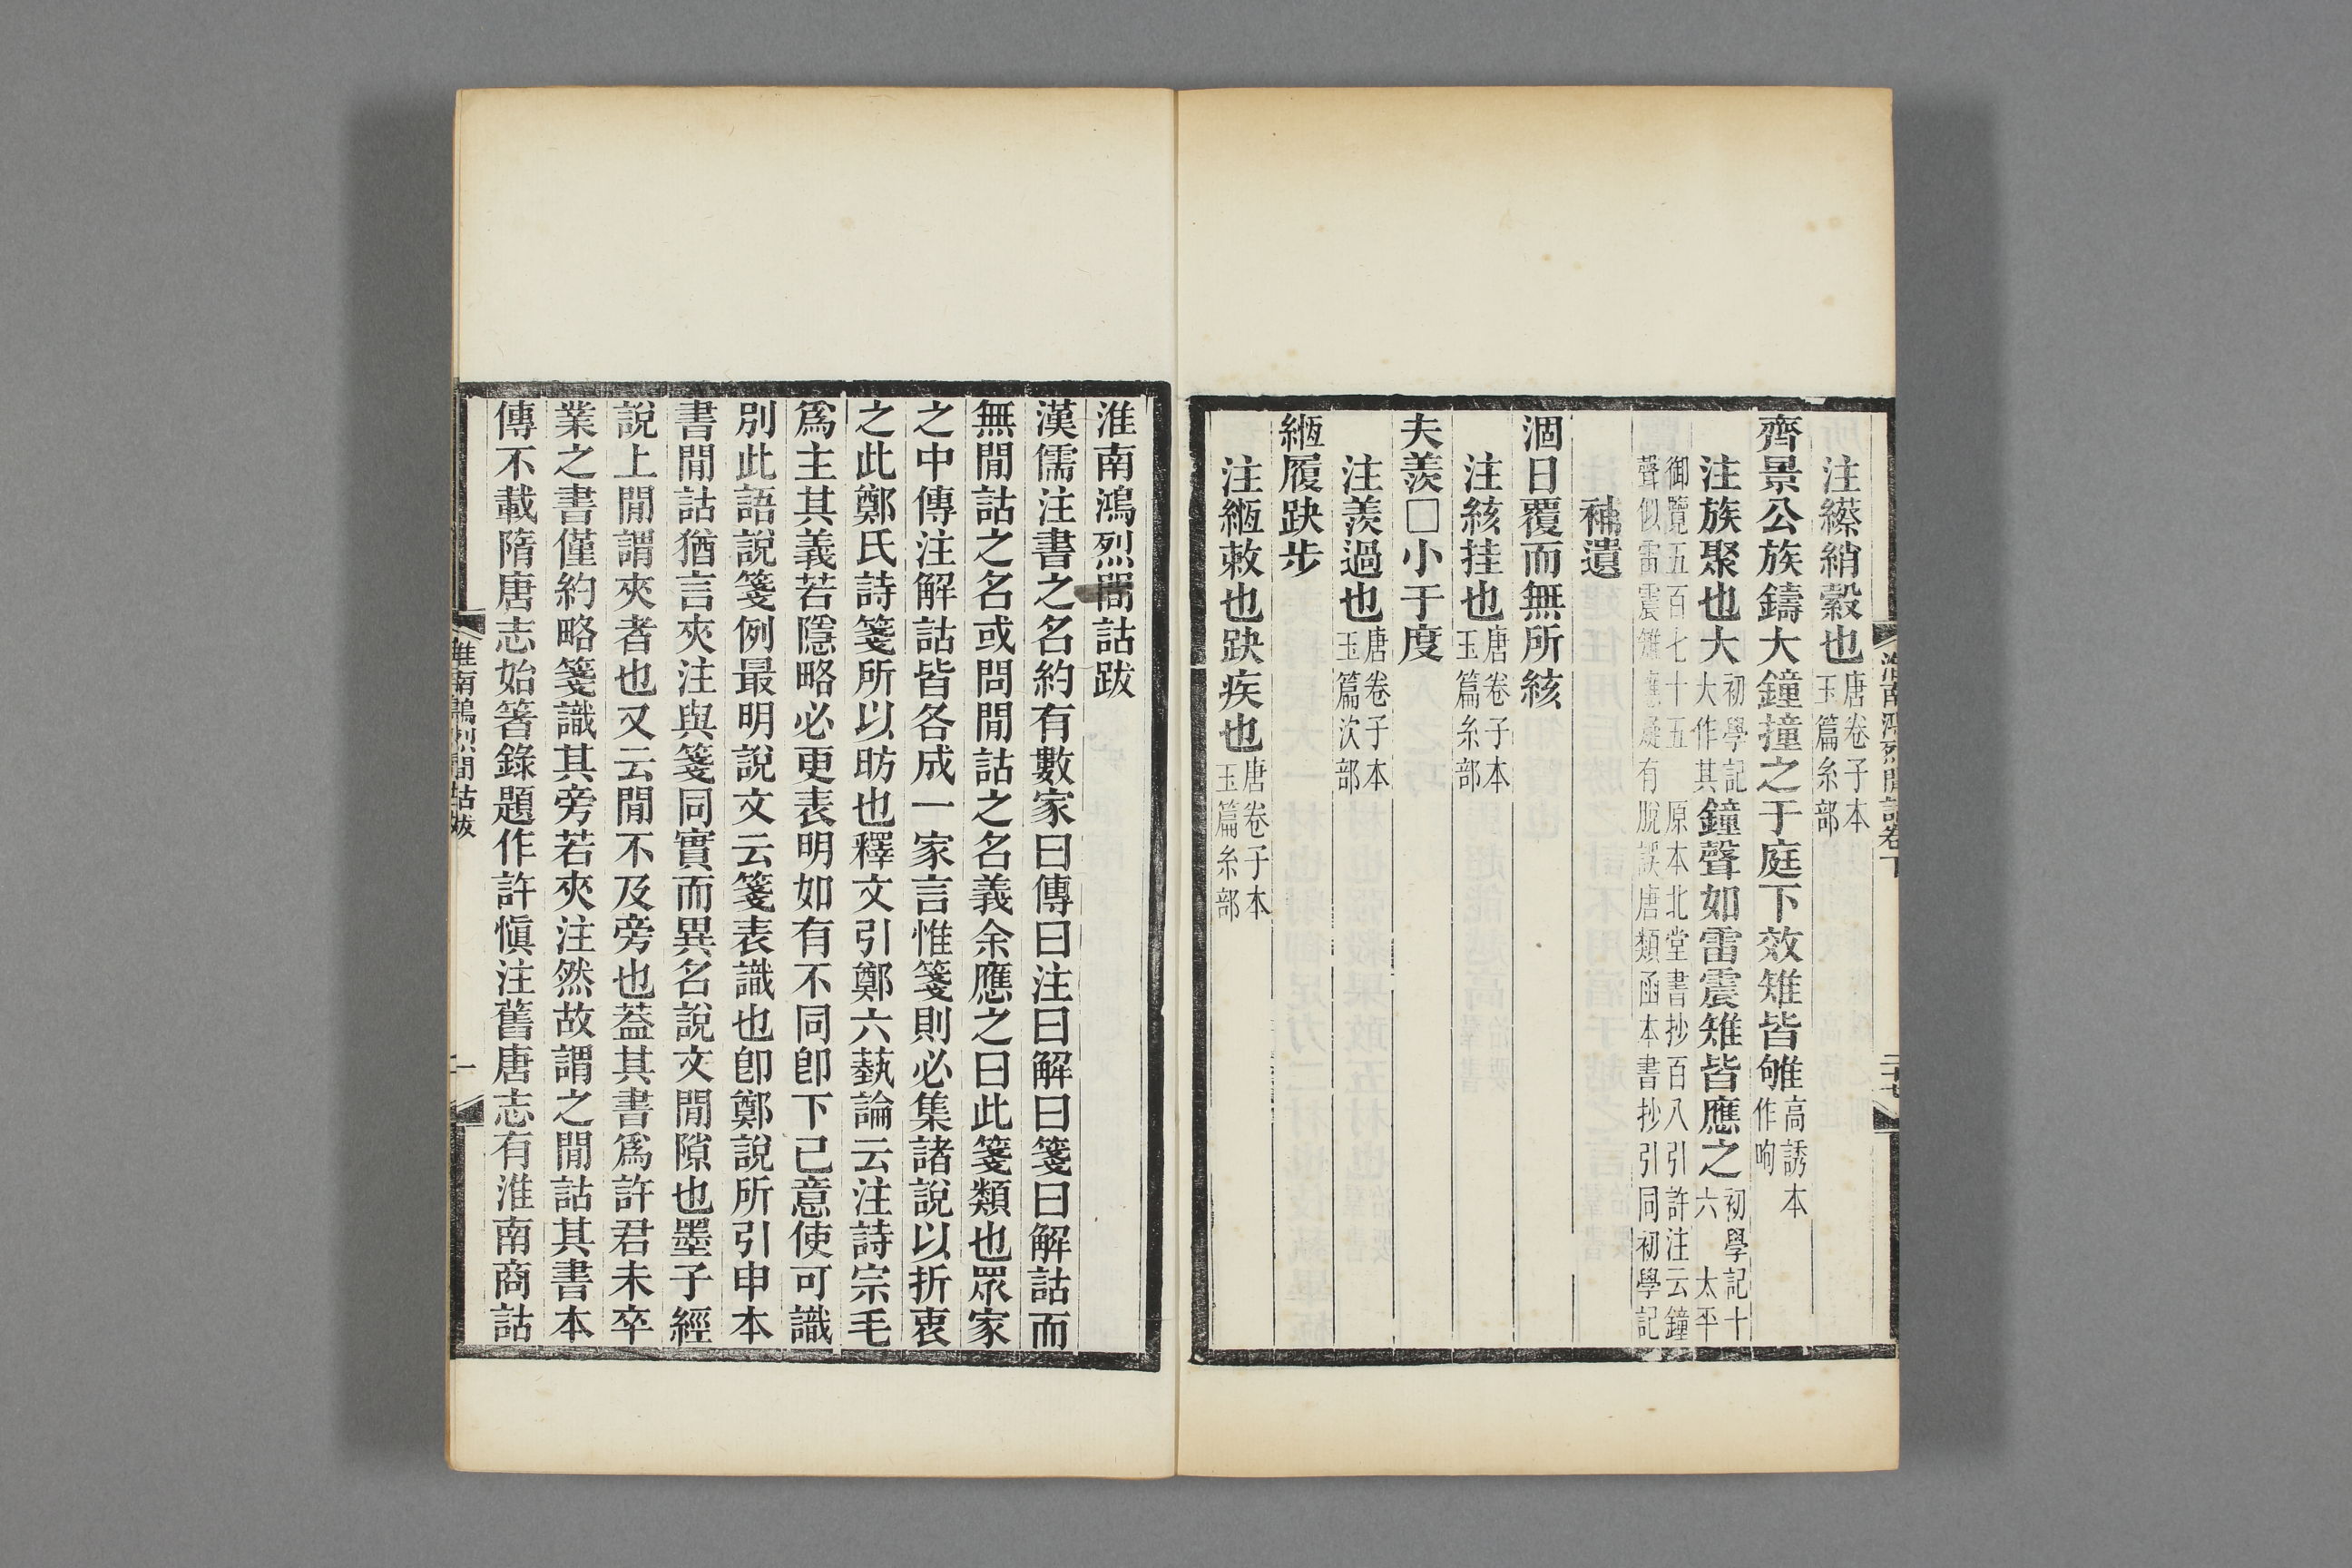 淮南鴻烈閒詁卷下
二十七
注纅綃縠也唐卷子本玉篇糸部
齊景公族鑄大鐘撞之于庭下效雉皆雊高誘本作呴
注族聚也大初學記大作其鐘聲如雷震雉皆應之初學記十六 太平
御覽五百七十五 原本北堂書抄百八引許注云鐘聲似雷震雉應疑有脫誤唐類函本書抄引同初學記
補遺
涸日覆而無所絯
注絯挂也唐卷子本玉篇糸部
夫羨□小于度
注羨過也唐卷子本玉篇次部
緪履趹步
注緪敕也趹疾也唐卷子本玉篇糸部
淮南鴻烈閒詁跋
漢儒注書之名約有數家曰傳曰注曰解曰箋曰解詁而
無閒詁之名或問閒詁之名義余應之曰此箋類也眾家
之中傳注解詁皆各成一家言惟箋則必集諸說以折衷
之此鄭氏詩箋所以昉也釋文引鄭六藝論云注詩宗毛
爲主其義若隱略必更表明如有不同卽下己意使可識
別此語說箋例最明說文云箋表識也卽鄭說所引申本
書閒詁猶言夾注與箋同實而異名說文閒隙也墨子經
說上閒謂夾者也又云閒不及旁也葢其書爲許君未卒
業之書僅約略箋識其旁若夾注然故謂之閒詁其書本
傳不載隋唐志始箸錄題作許愼注舊唐志有淮南商詁
淮南鴻烈閒詁跋
一